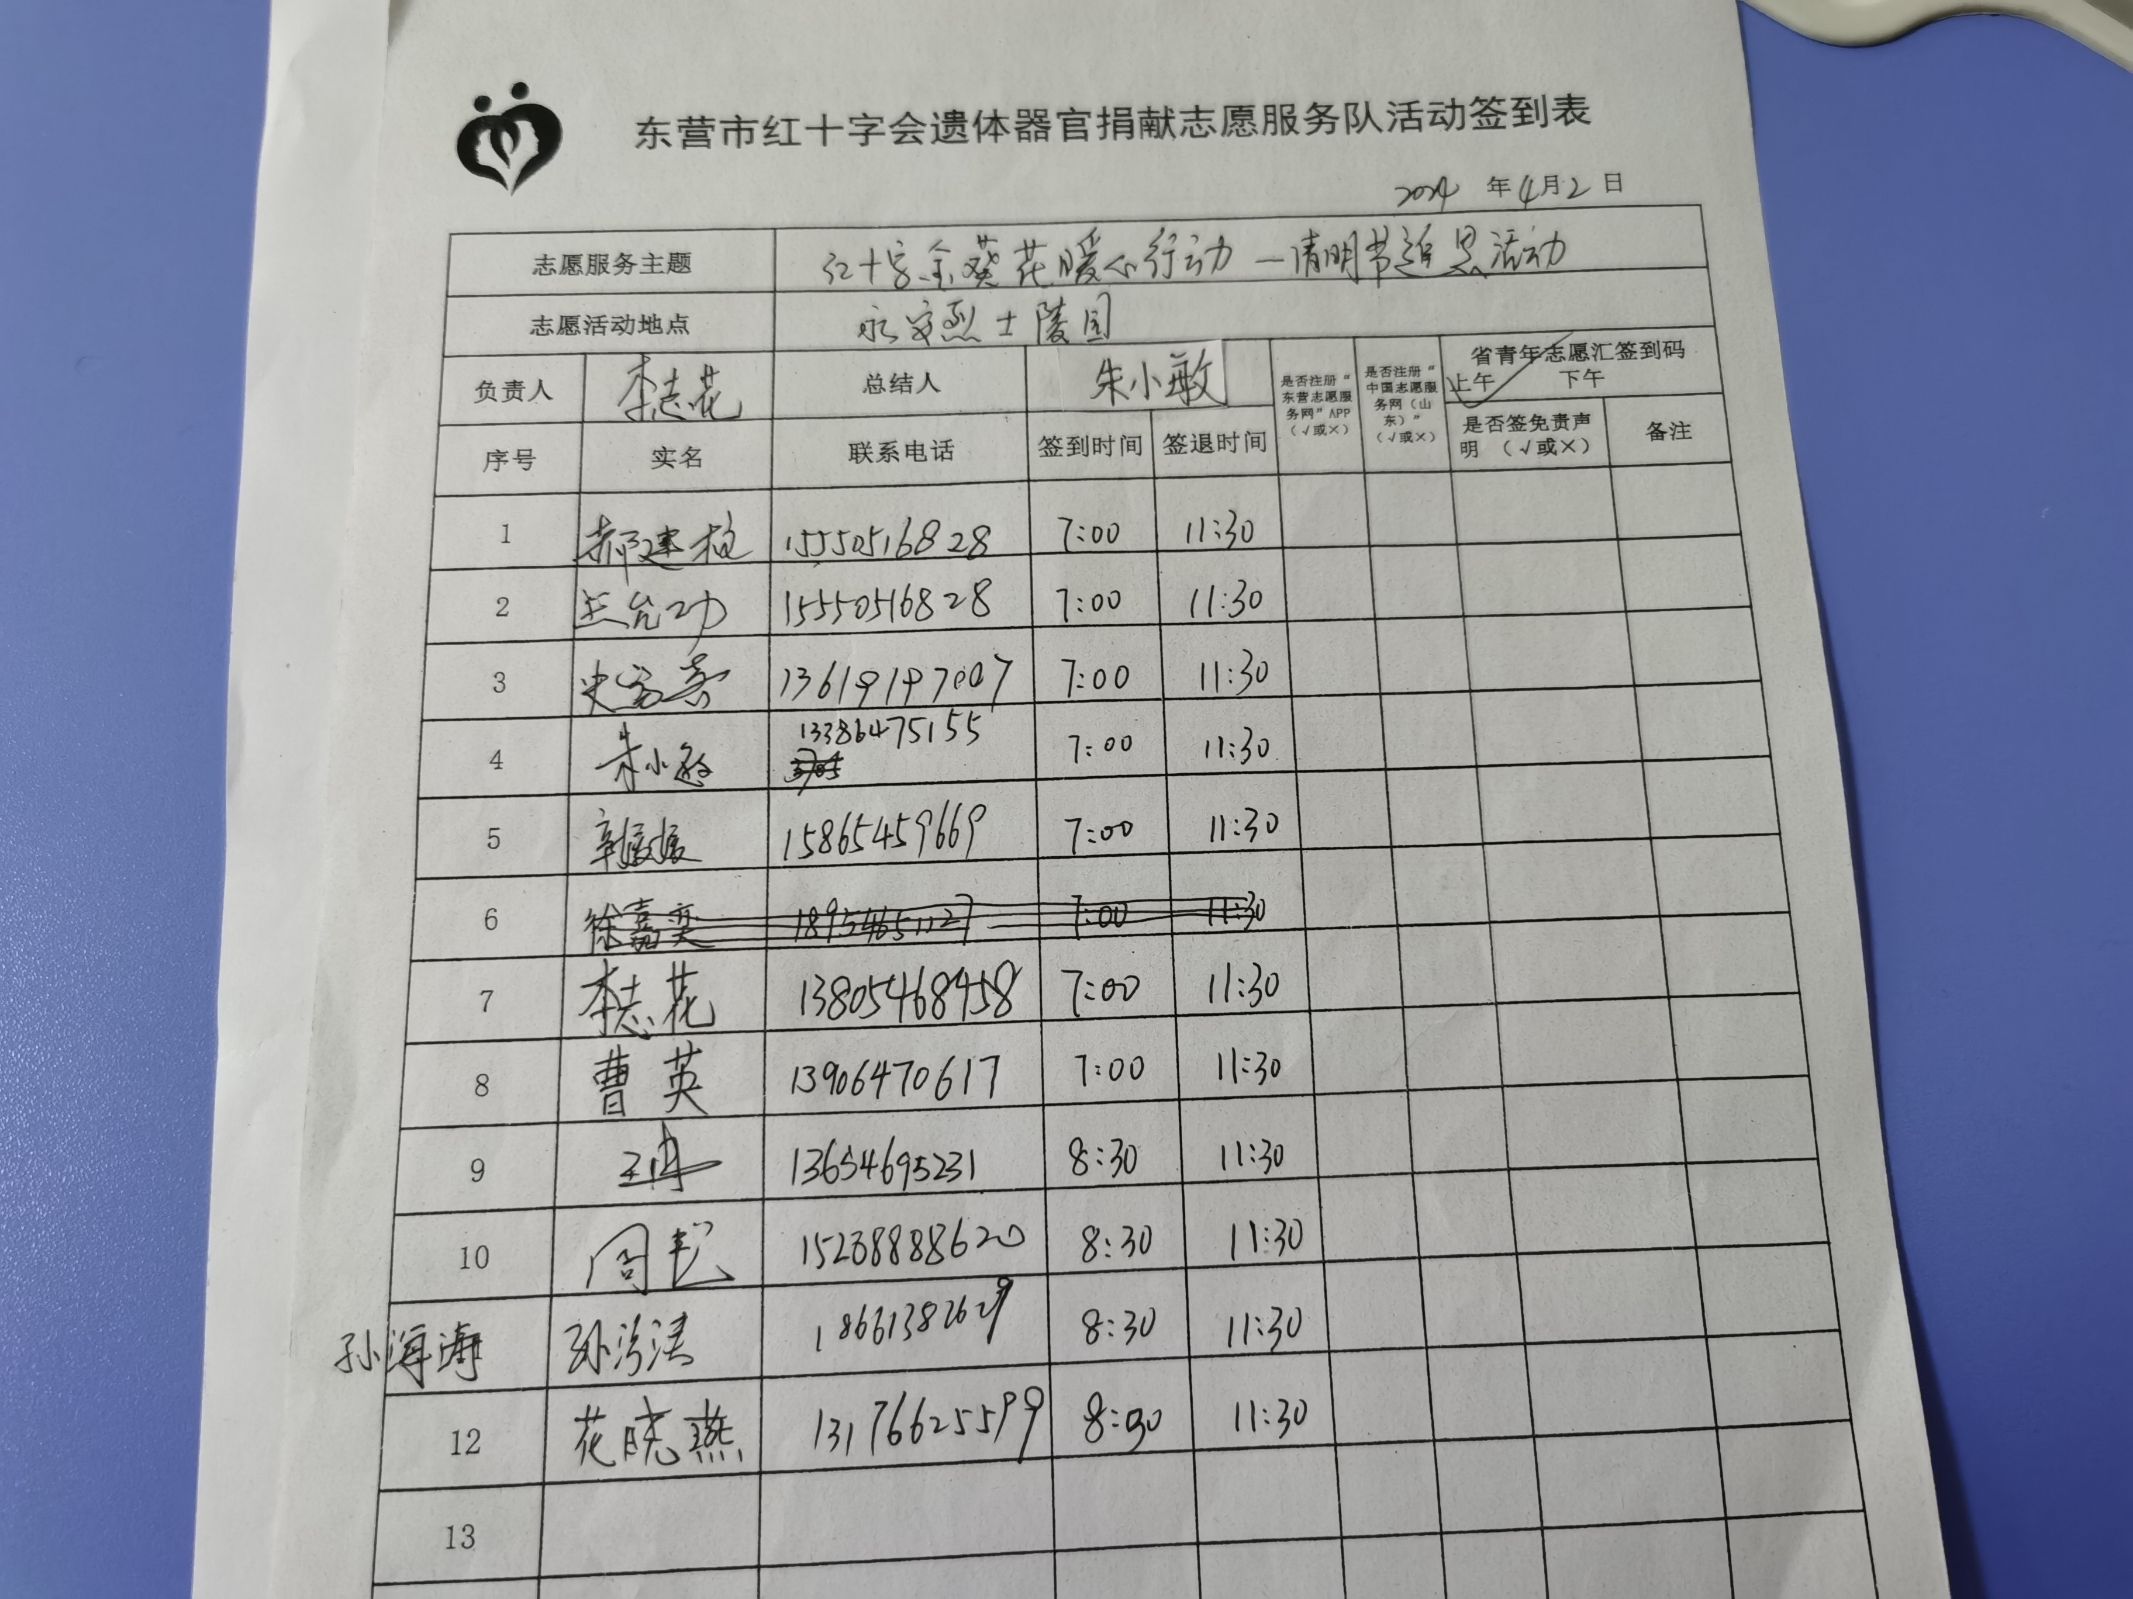 东营市红十字会遗体器官捐献志愿服务队活动签到表
2024 年 4 月 2 日
志愿服务主题 红十字金葵花暖心行动—清明节追思活动
志愿活动地点 永安烈士陵园
负责人 李志花 总结人 朱小敏 是否注册“东营志愿服务网”APP（√或×） 是否注册“中国志愿服务网（山东）”（√或×） 省青年志愿汇签到码 上午 下午
序号 实名 联系电话 签到时间 签退时间 是否签免责声明（√或×） 备注
1 郝建 15550516828 7:00 11:30
2 15550516828 7:00 11:30
3 13619197007 7:00 11:30
4 朱小敏 13386475155 7:00 11:30
5 15865459669 7:00 11:30
6 徐嘉奕 18954651127 7:00 11:30
7 李志花 13805468458 7:00 11:30
8 曹英 13906470617 7:00 11:30
9 13654695231 8:30 11:30
10 周 15238888620 8:30 11:30
孙海涛 18661382629 8:30 11:30
12 花晓燕 13176625599 8:30 11:30
13